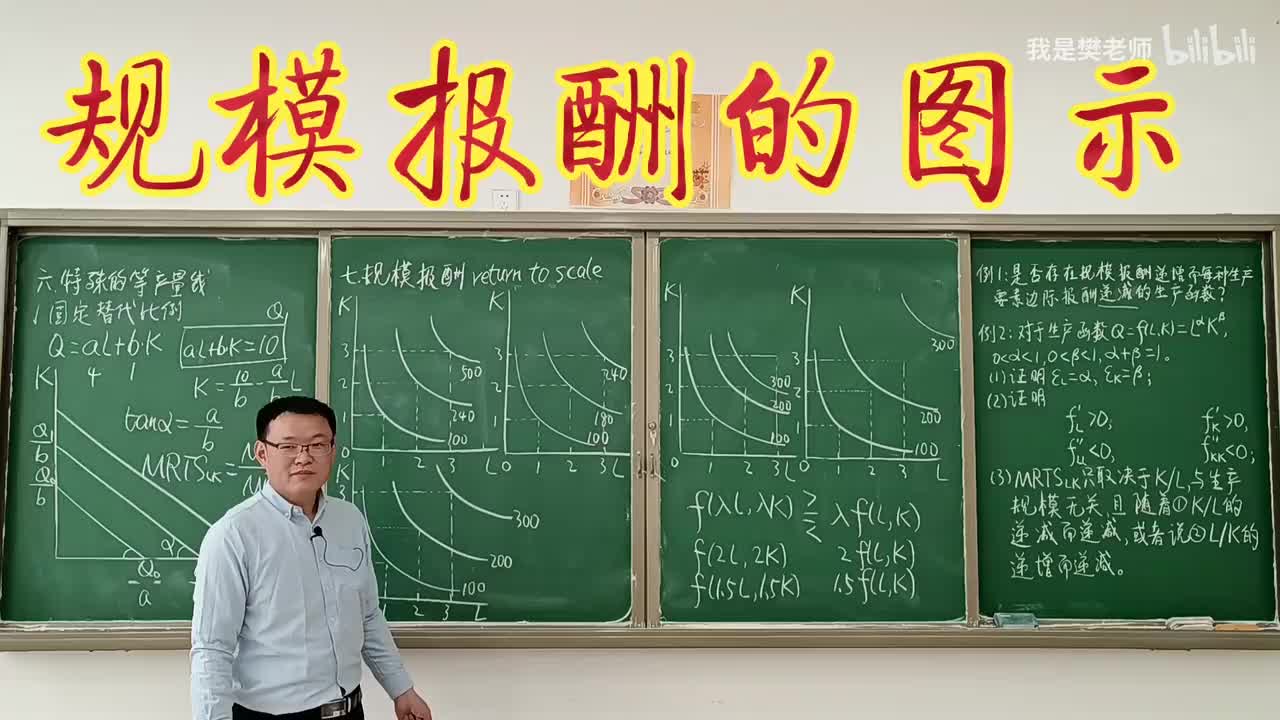 我是樊老师 bilibili
规模报酬的图示
六.特殊的等产量线
1.固定替代比例
Q=aL+b·K
4 1
aL+b·K=10
Q
K=10/b-a/b L
tanα=a/b
MRTS_LK=
K
Q₁/b
Q₀/b
α
-Q₀/a
七.规模报酬 return to scale
K
3
2
1
0 1 2 3 L
500
240
100
K
3
2
1
0 1 2 3 L
240
180
100
K
3
1 2 3 L
300
200
100
K
3
2
1
0 1 2 3 L
300
200
100
K
3
2
1
0 1 2 3 L
300
200
100
f(λL,λK) ⋛ λf(L,K)
f(2L,2K) 2f(L,K)
f(1.5L,1.5K) 1.5f(L,K)
例1:是否存在规模报酬递增而每种生产
要素边际报酬递减的生产函数?
例2:对于生产函数Q=f(L,K)=L^αK^β,
0<α<1,0<β<1,α+β=1。
(1)证明ε_L=α,ε_K=β;
(2)证明
f'_L>0, f'_K>0,
f''_LL<0, f''_KK<0;
(3)MRTS_LK只取决于K/L,与生产
规模无关,且随着①K/L的
递减而递减,或者说②L/K的
递增而递减。